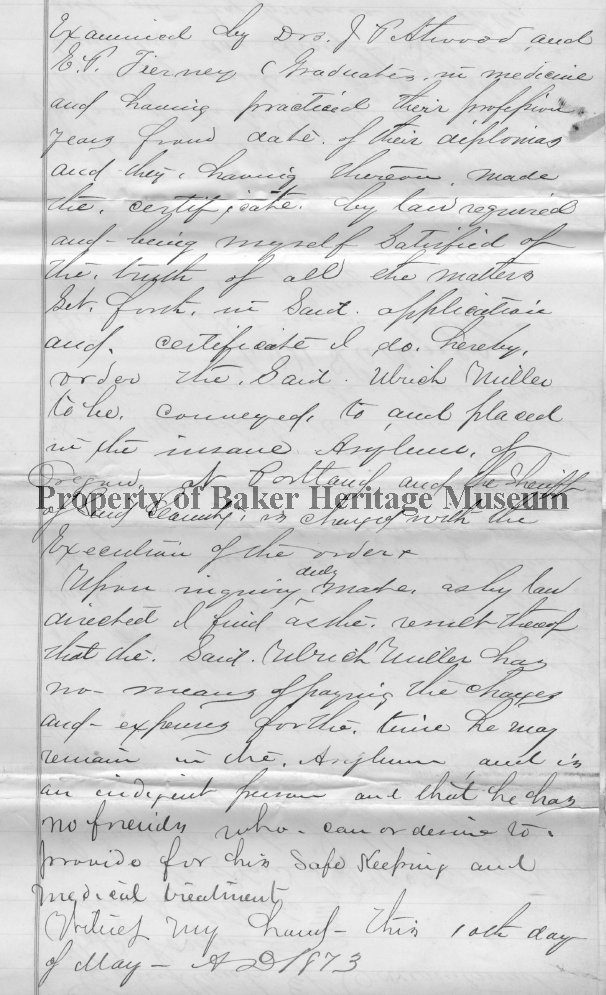 Examined by Drs. J P Atwood and
E. P. Tierney (Graduates in medicine
and having practiced their profession
years from date of their diplomas
and they having thereon made
the certificate by law required
and being myself Satisfied of
the truth of all the matters
Set forth in Said application
and certificate I do hereby
order the Said Ulrich Miller
to be conveyed to and placed
in the insane Asylum of
Oregon at Portland and the Sheriff
Property of Baker Heritage Museum
of Said County is charged with the
Execution of the order
duly
Upon inquiry made as by law
directed I find as the result thereof
that the Said Ulrich Miller has
no means of paying the charges
and expenses for the time he may
remain in the Asylum and is
an indigent person and that he has
no friends who can or desire to
provide for his Safe Keeping and
medical treatment
Witness My hand this 10th day
of May A D 1873